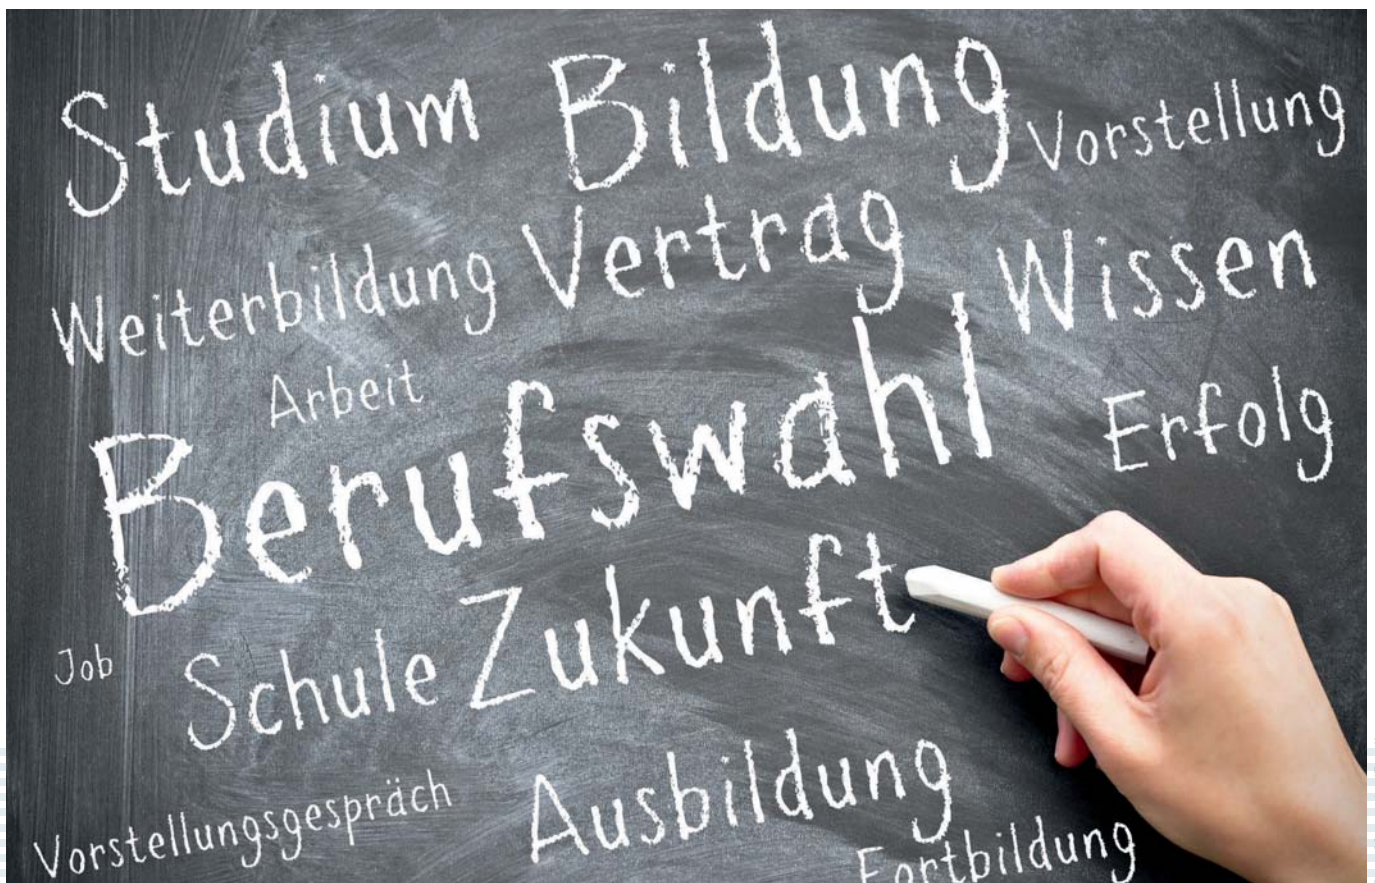 Studium Bildung Vorstellung
Weiterbildung Vertrag Wissen
Arbeit Berufswahl Erfolg
Job Schule Zukunft
Vorstellungsgespräch Ausbildung
Fortbildung